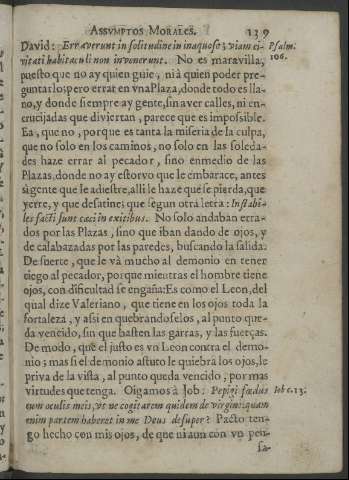 ASSVMPTOS MORALES. 139
David: Erraverunt in solitudine in inaquoso; viam ci- Psalm.
vitati habitaculi non invenerunt. No es maravilla, 106.
puesto que no ay quien guie, ni à quien poder pre-
guntarlos pero errar en vna Plaza, donde todo es lla-
no, y donde siempre ay gente, sin aver calles, ni en-
crucijadas que diviertan, parece que es impossible.
Ea, que no, porque es tanta la miseria de la culpa,
que no solo en los caminos, no solo en las soleda-
des haze errar al pecador, sino enmedio de las
Plazas, donde no ay estorvo que le embarace, antes
si gente que le adiestre, alli le haze que se pierda, que
yerre, y que desatine; que segun otra letra: Instabi-
les facti sunt cæci in exitibus. No solo andaban erra-
dos por las Plazas, sino que iban dando de ojos, y
de calabazadas por las paredes, buscando la salida.
De suerte, que le và mucho al demonio en tener
ciego al pecador, porque mientras el hombre tiene
ojos, con dificultad se engaña: Es como el Leon, del
qual dize Valeriano, que tiene en los ojos toda la
fortaleza, y assi en quebrandoselos, al punto que-
da vencido, sin que basten las garras, y las fuerças.
De modo, que el justo es vn Leon contra el demo-
nio; mas si el demonio astuto le quiebra los ojos, le
priva de la vista, al punto queda vencido, por mas
virtudes que tenga. Oigamos à Job: Pepigi fœdus Iob c. 13.
cum oculis meis, vt ne cogitarem quidem de virgine: quam
enim partem haberet in me Deus desuper? Pacto ten-
go hecho con mis ojos, de que ni aun con vn pen-
sa-